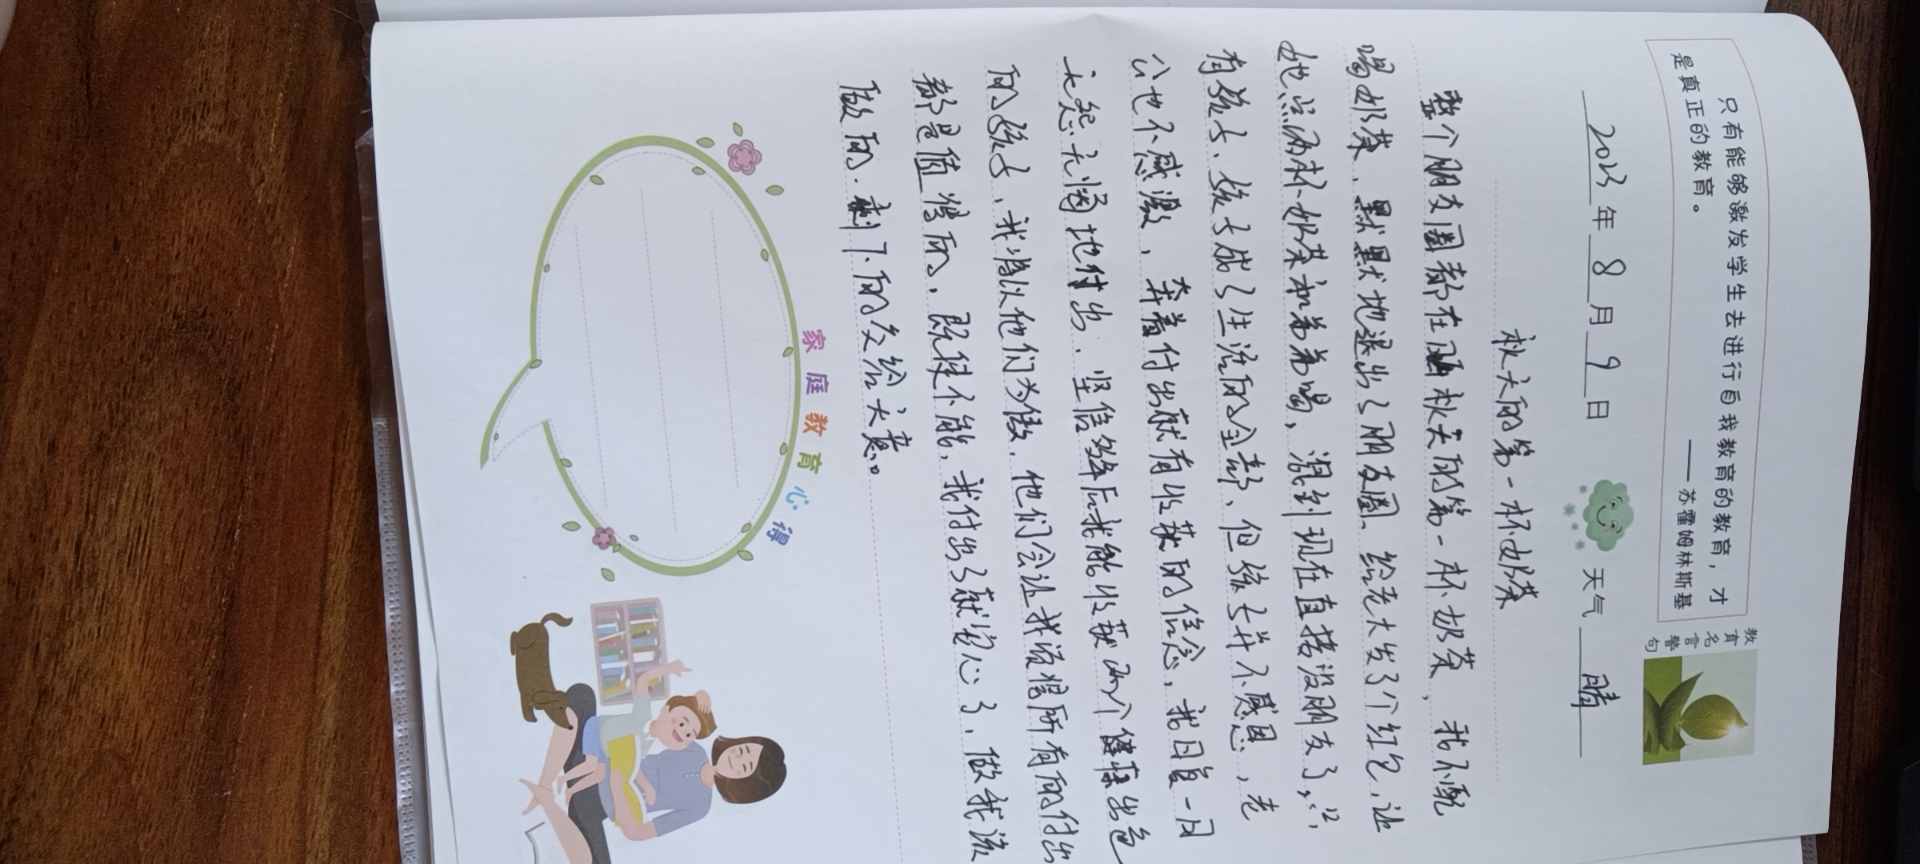 只有能够激发学生去进行自我教育的教育，才
是真正的教育。
——苏霍姆林斯基
教育名言警句
2023年8月9日 天气 晴
秋天的第一杯奶茶
整个朋友圈都在晒秋天的第一杯奶茶，我不配
喝奶茶、默默地退出了朋友圈、给老大发了个红包，让
她点两杯奶茶和弟弟喝，混到现在直接没朋友了，
有孩子、孩子成了生活的全部、但孩子并不感恩，老
八也不感激，奔着付出就有收获的信念，我日复一日
无怨无悔地付出、坚信多年后我能收获两个健康出色
的孩子，我将以他们为傲，他们会让我觉得所有的付出
都是值得的，既使不能，我付出了就安心了，做我该
做的，剩下的交给天意。
家庭教育心得